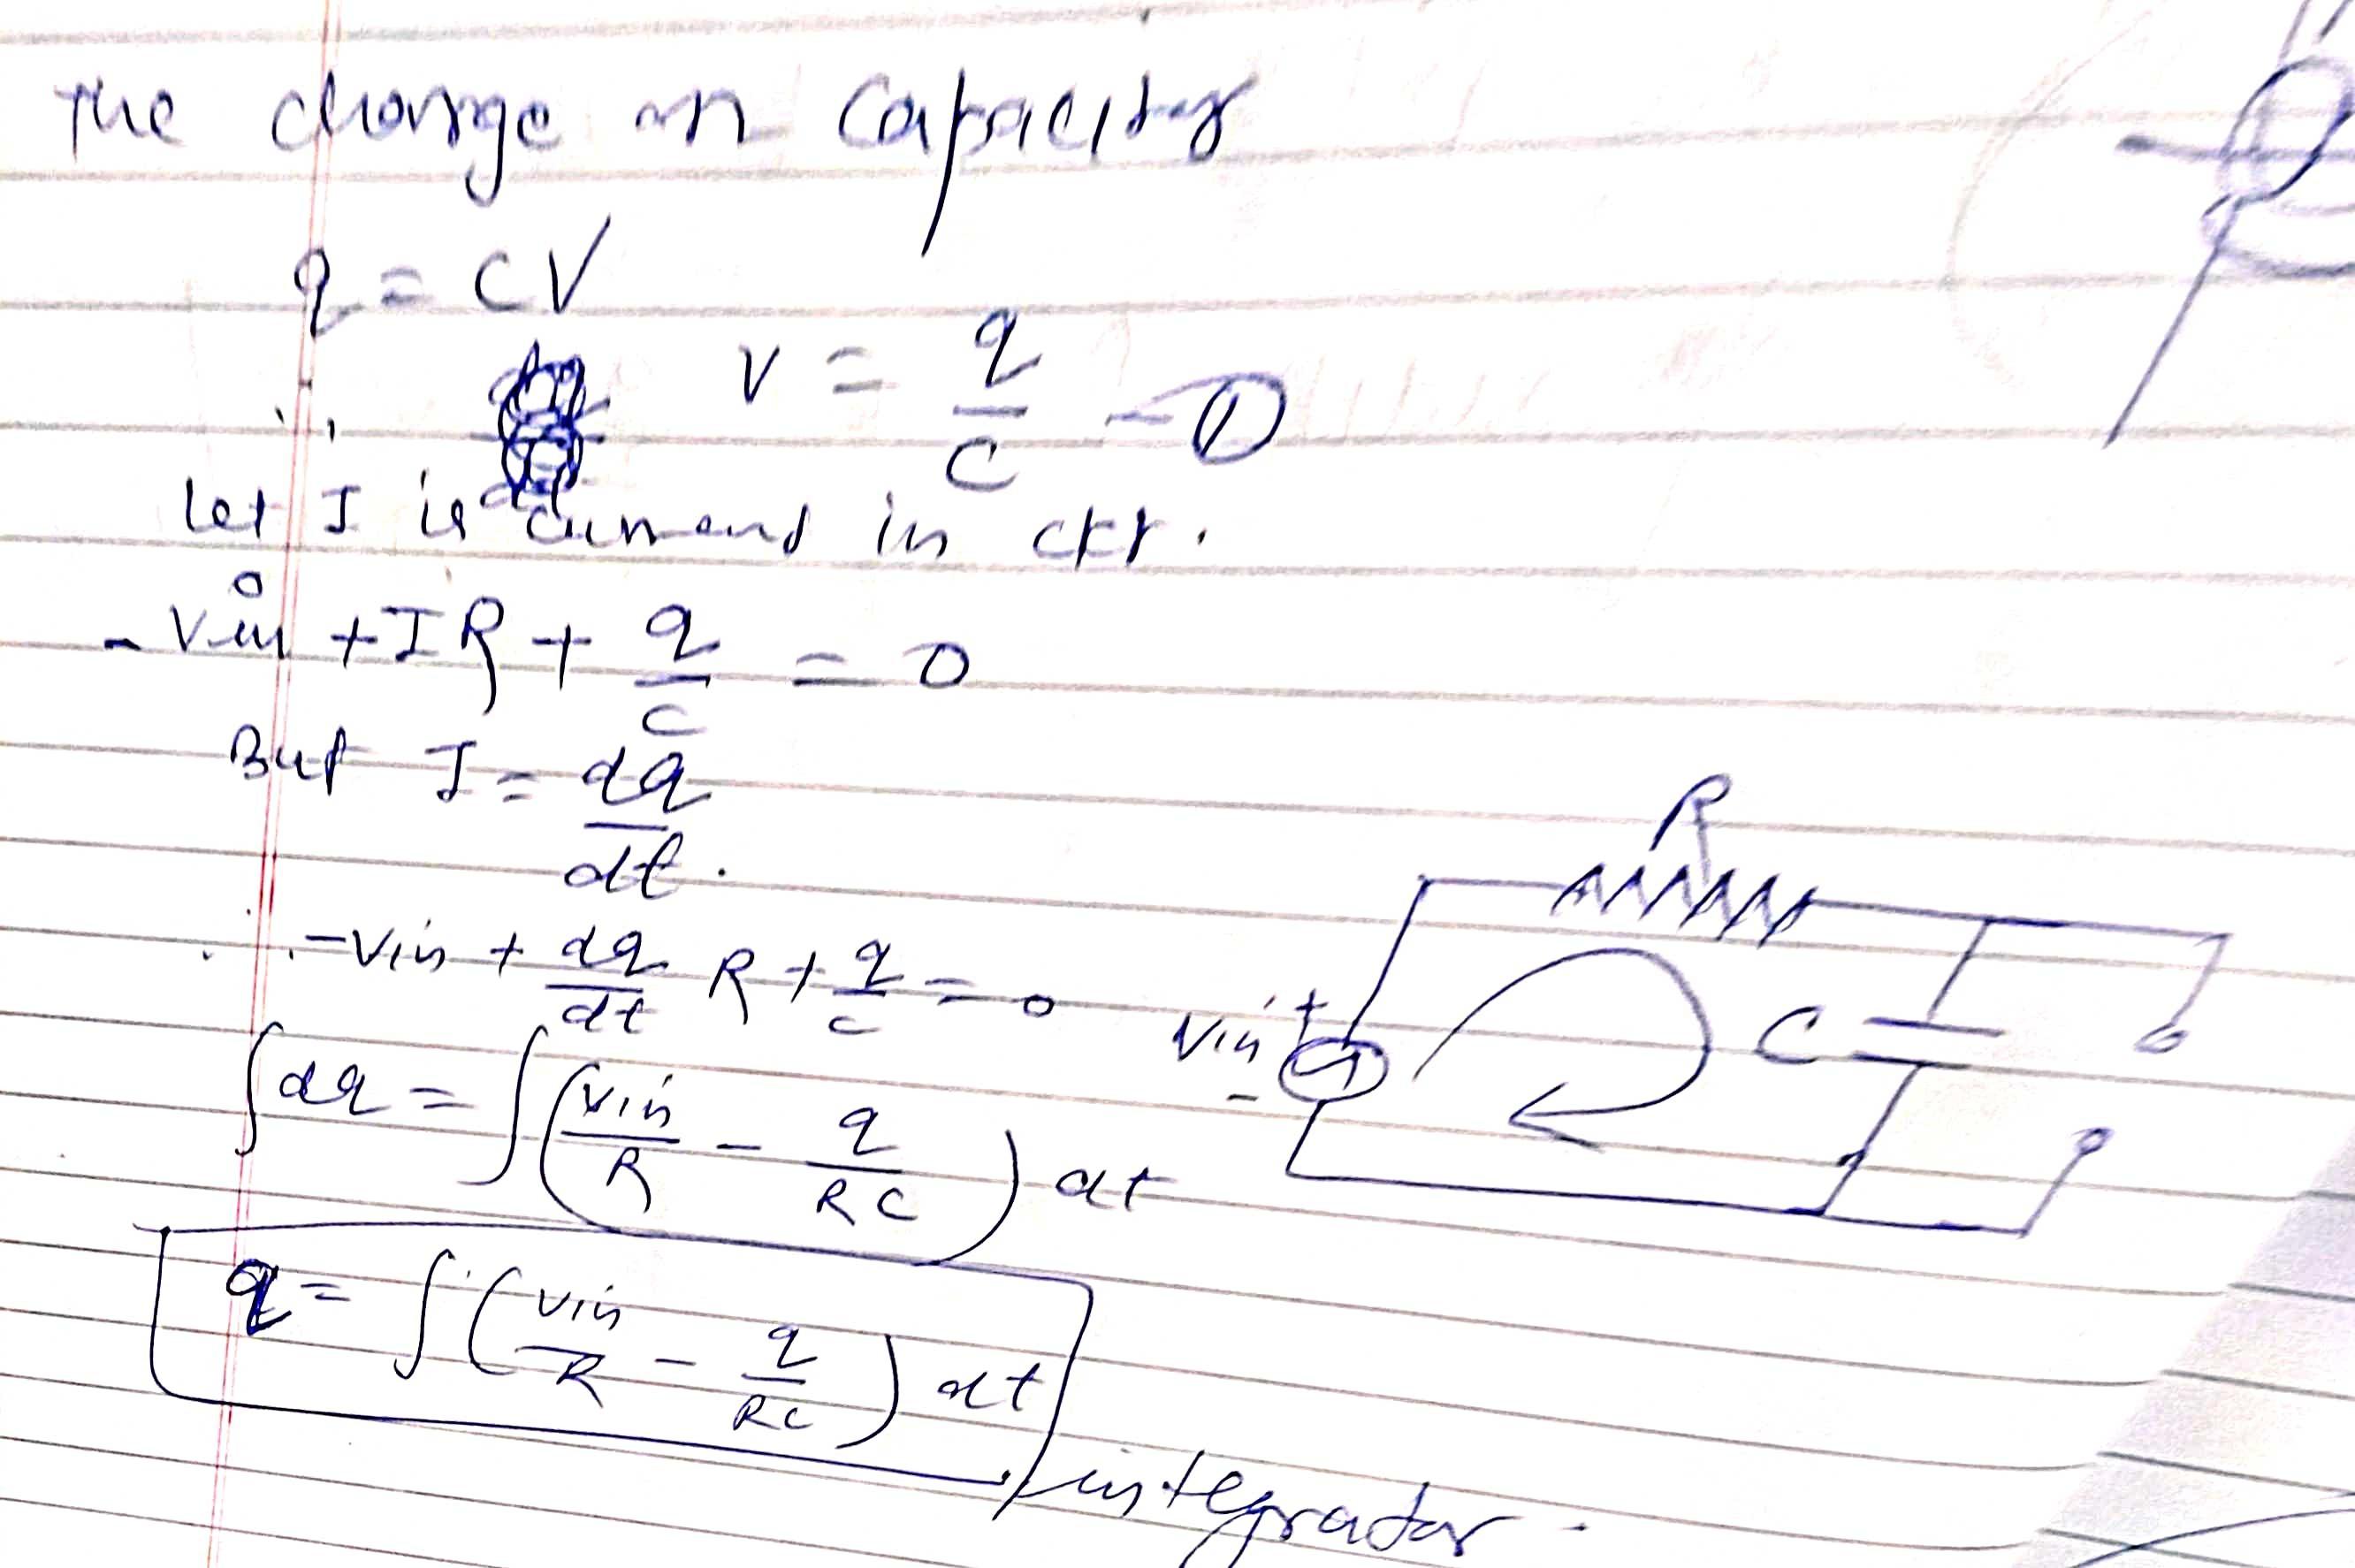 The charge on capacitor
q = CV
∴ V = q/C - ①
Let I is current in ckt.
- Vin + IR + q/C = 0
But I = dq/dt.
∴ -Vin + dq/dt R + q/C = 0
∫dq = ∫(Vin/R - q/RC) dt
q = ∫(Vin/R - q/RC) dt
integrator.
R
Vin + -
C